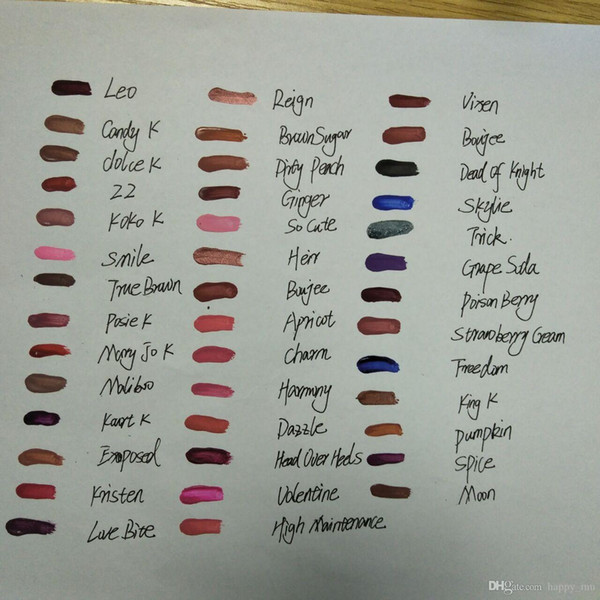 Leo
Candy K
dolce K
22
KoKo K
Smile
True Brown
Posie K
Mary Jo K
Malibro
Kourt K
Exposed
Kristen
Love Bite
Reign
Brown Sugar
Dirty Peach
Ginger
So Cute
Heir
Boujee
Apricot
Charm
Harmony
Dazzle
Head Over Heels
Valentine
High Maintenance
Vixen
Boujee
Dead of Knight
Skylie
Trick.
Grape Soda
Poison Berry
Strawberry Cream
Freedom
King K
Pumpkin
Spice
Moon
DHgate.com happy_mn